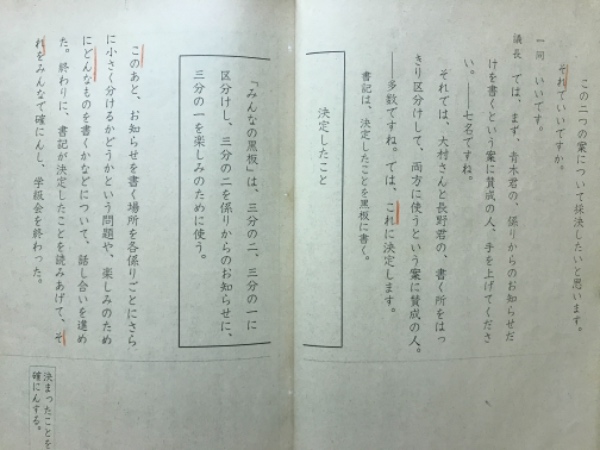 この二つの案について採決したいと思います。
それでいいですか。
一同 いいです。
議長 では、まず、青木君の、係りからのお知らせだ
けを書くという案に賛成の人、手を上げてくださ
い。――七名ですね。
それでは、大村さんと長野君の、書く所をはっ
きり区分けして、両方に使うという案に賛成の人。
――多数ですね。では、これに決定します。
書記は、決定したことを黒板に書く。
決定したこと
「みんなの黒板」は、三分の二、三分の一に
区分けし、三分の二を係りからのお知らせに、
三分の一を楽しみのために使う。
このあと、お知らせを書く場所を各係りごとにさら
に小さく分けるかどうかという問題や、楽しみのため
にどんなものを書くかなどについて、話し合いを進め
た。終わりに、書記が決定したことを読みあげて、そ
れをみんなで確にんし、学級会を終わった。
決まったことを
確にんする。